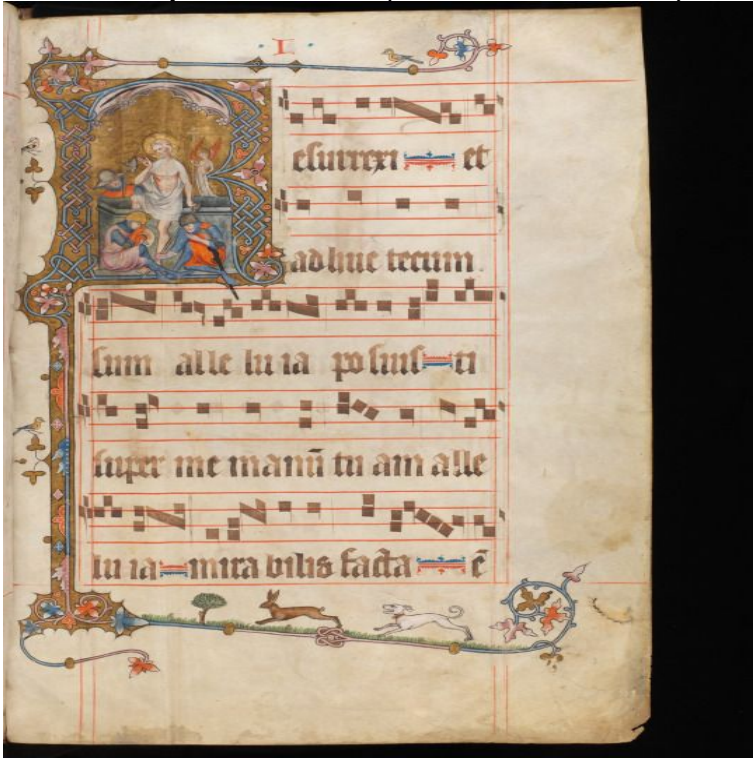 ·I·
Resurrexi et
adhuc tecum
sum alle lu ia po suis ti
super me manū tu am alle
lu ia mira bilis facta ē